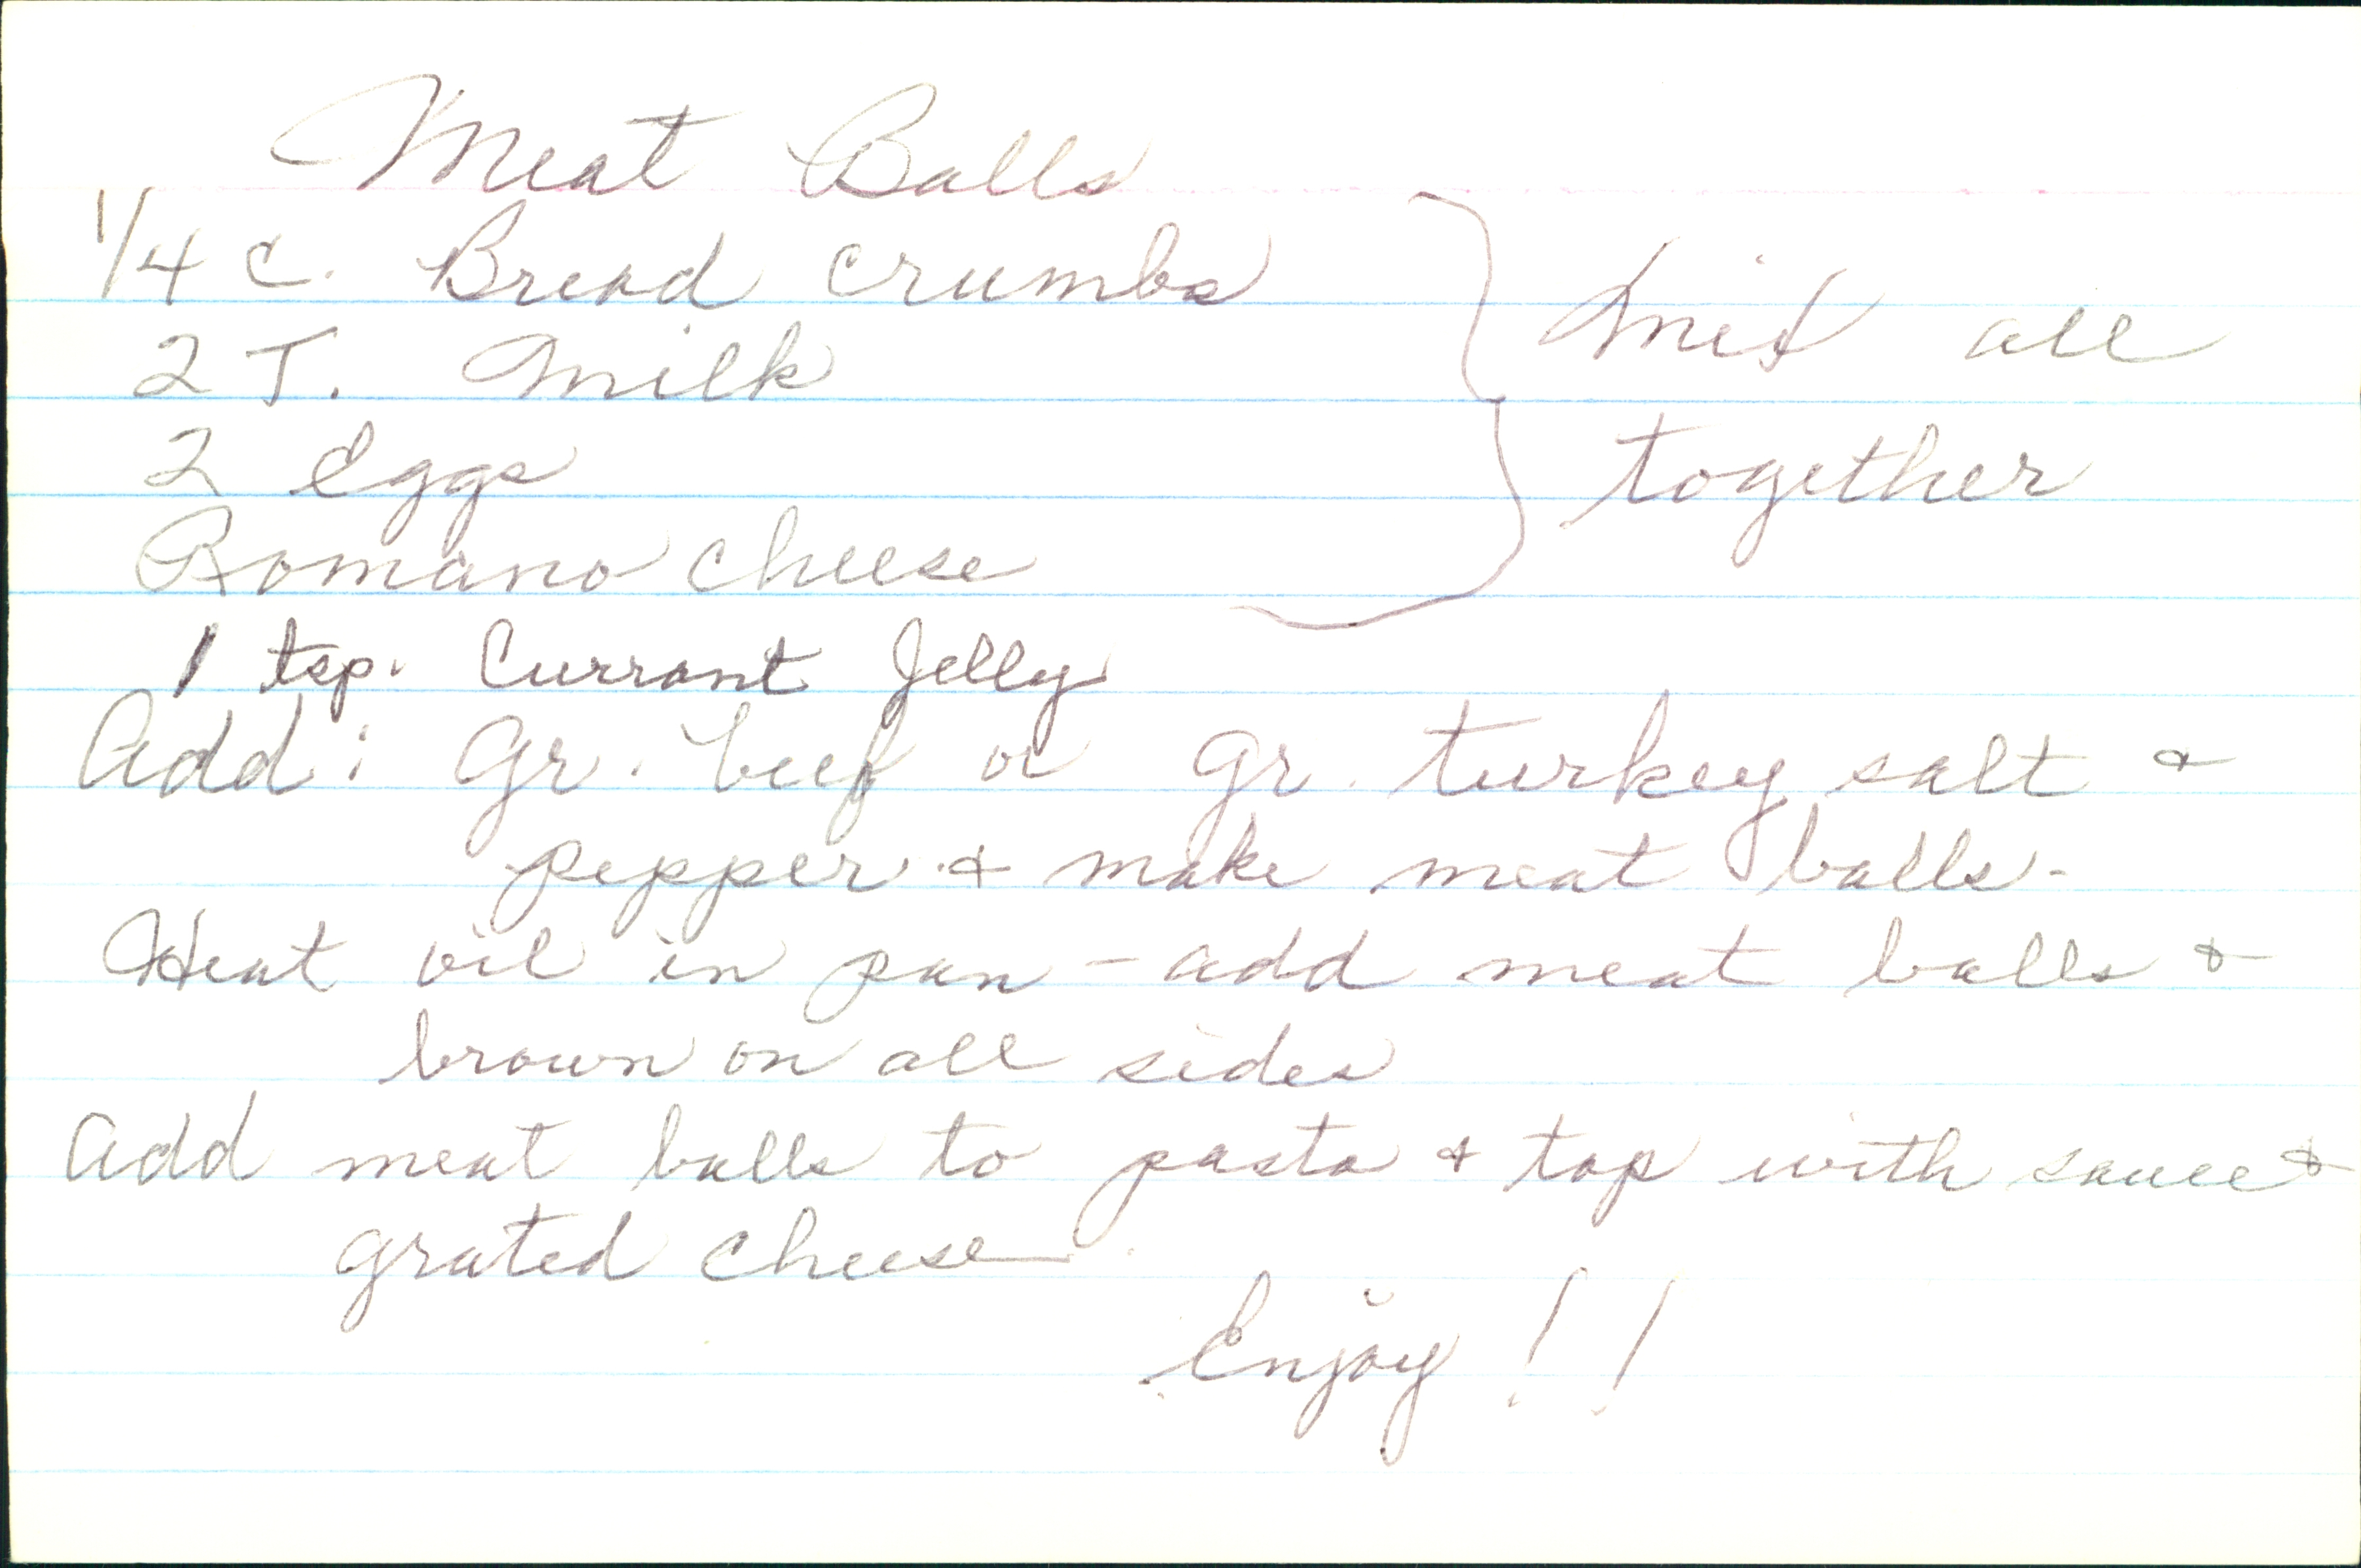 Meat Balls
1/4 c. Bread crumbs
2 T. milk
2 eggs
Romano cheese
mix all
together
1 tsp. Currant Jelly
Add: Gr. beef or gr. turkey salt &
pepper & make meat balls.
Heat oil in pan - add meat balls &
brown on all sides
Add meat balls to pasta & top with sauce &
grated cheese
Enjoy!!